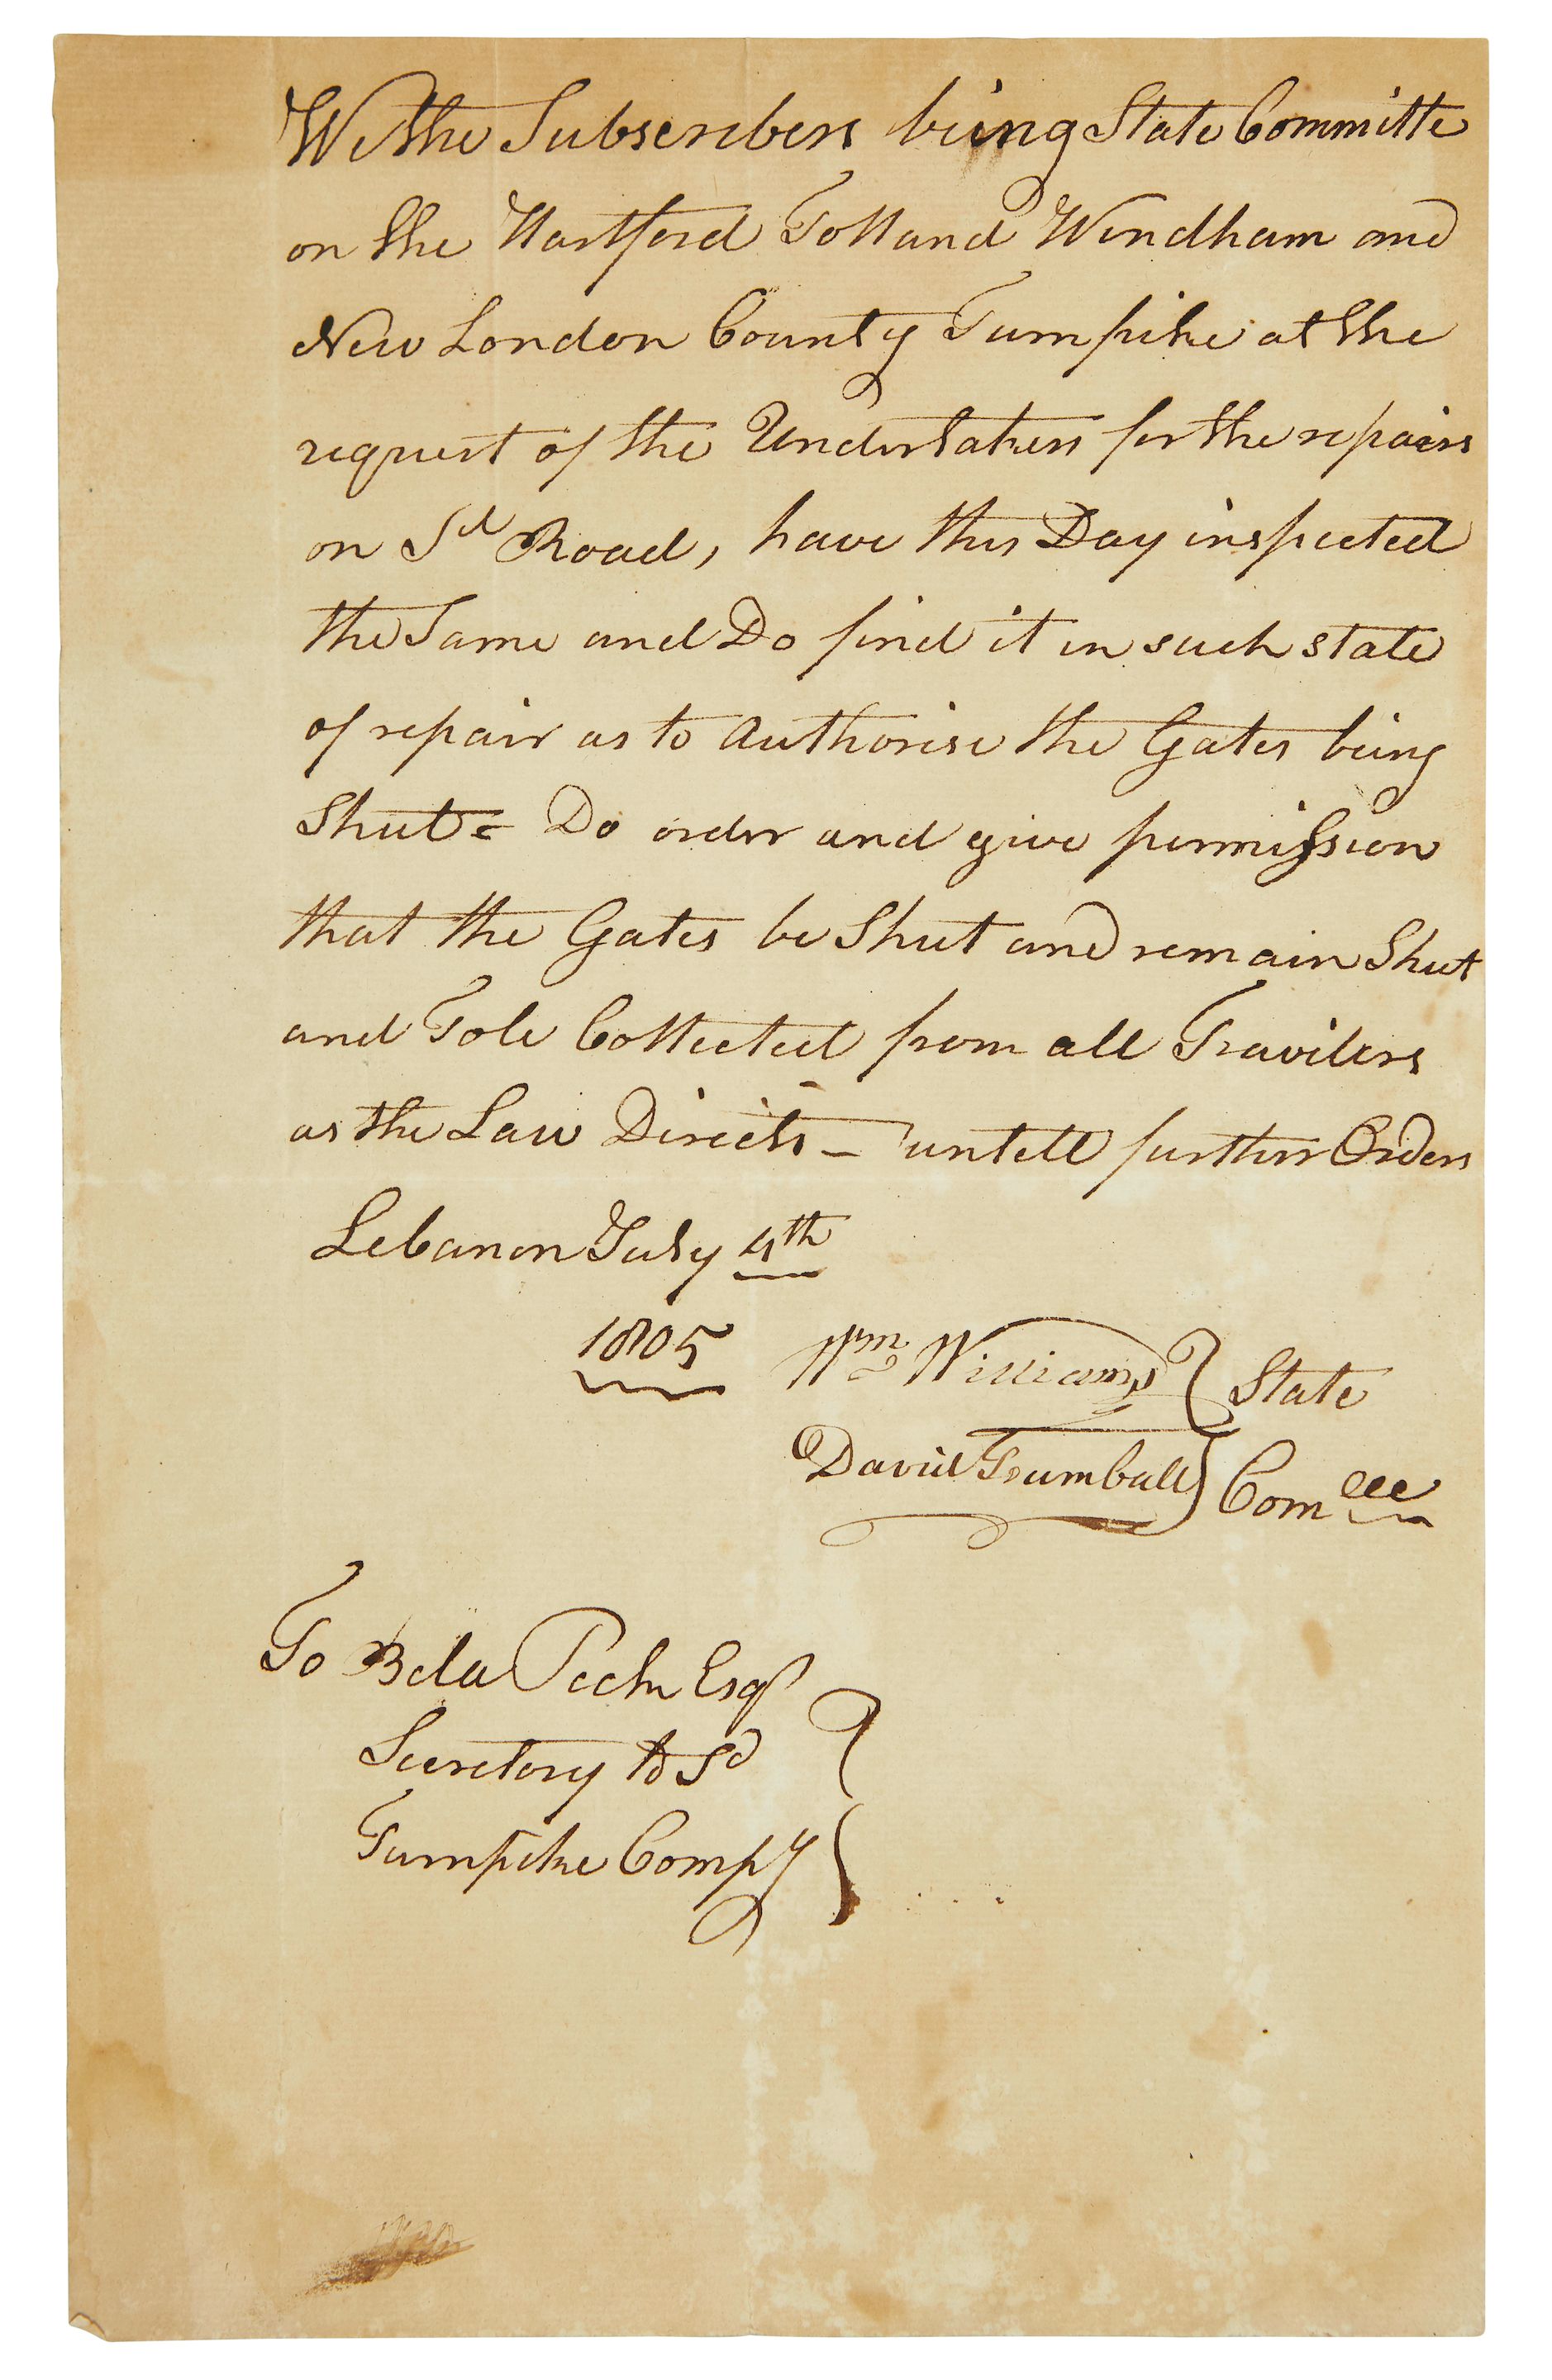 We the Subscribers being State Committe
on the Hartford Tolland Windham and
New London County Turnpike at the
request of the Undertakers for the repairs
on Sd Road, have this Day inspected
the Same and Do find it in such state
of repair as to Authorise the Gates being
Shut = Do order and give permission
that the Gates be Shut and remain Shut
and Tole Collected from all Travilers
as the Law Directs – untell further Orders
Lebanon July 4th
1805
Wm Williams } State
David Trumbull } Comee
To Bela Peck Esqr
Secretory to Sd
Turnpike Compy